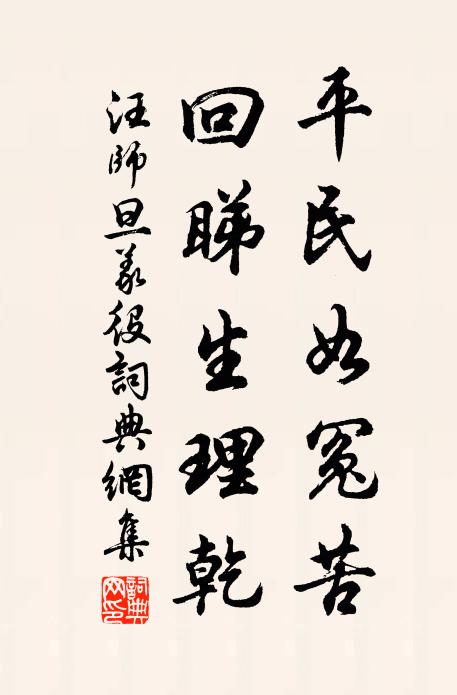 平民如冤苦
回睇生理乾
汪師旦義役詞典網集
詞典網印